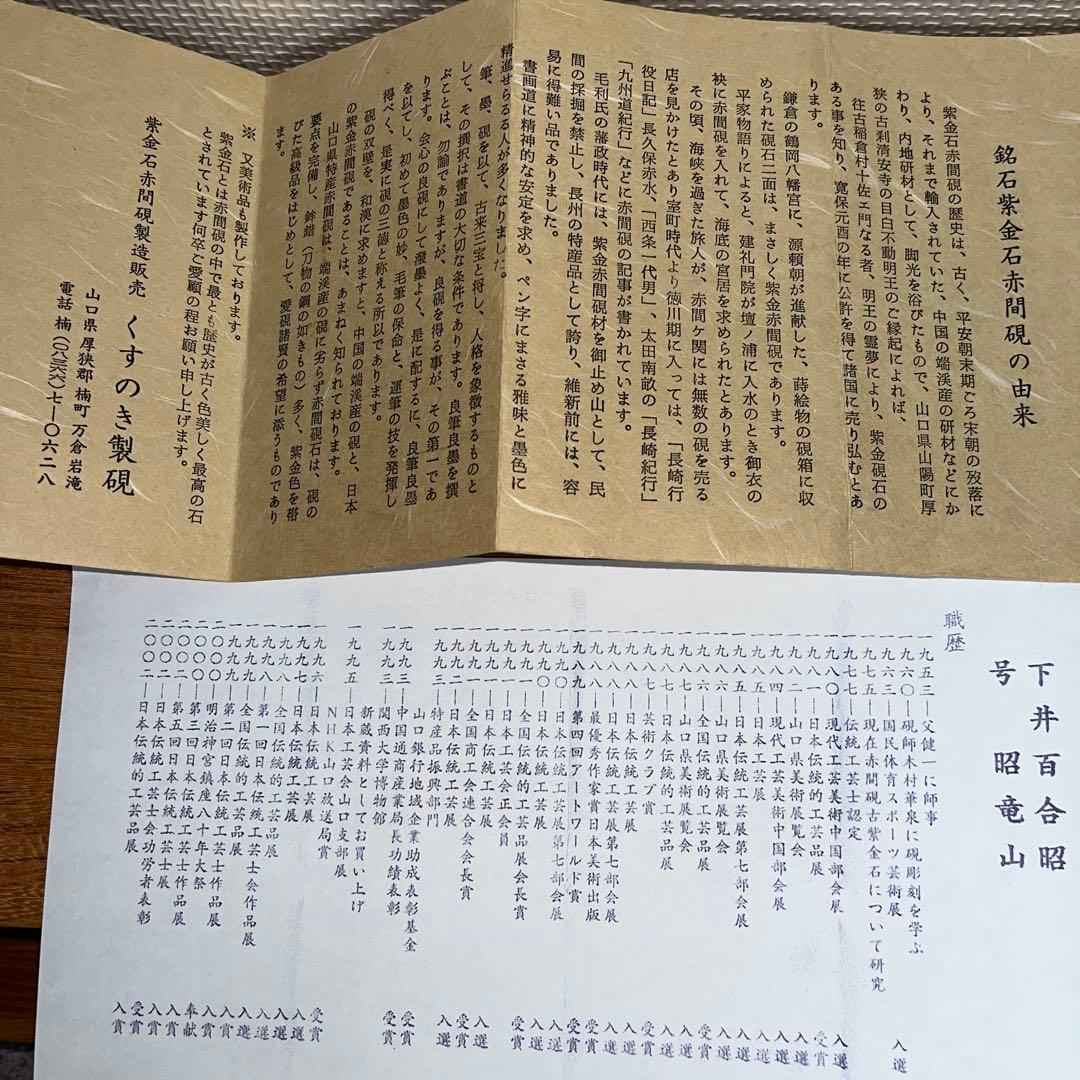 銘石紫金石赤間硯の由来
紫金石赤間硯の歴史は、古く、平安朝末期ごろ宋朝の歿落に
より、それまで輸入されていた、中国の端渓産の研材などにか
わり、内地研材として、脚光を浴びたもので、山口県山陽町厚
狭の古刹清安寺の目白不動明王のご縁起によれば、
往古稲倉村十佐ェ門なる者、明王の霊夢により、紫金硯石の
ある事を知り、寛保元酉の年に公許を得て諸国に売り弘むとあ
ります。
鎌倉の鶴岡八幡宮に、源頼朝が進献した、蒔絵物の硯箱に収
められた硯石二面は、まさしく紫金赤間硯であります。
平家物語りによると、建礼門院が壇ノ浦に入水のとき御衣の
袂に赤間硯を入れて、海底の宮居を求められたとあります。
その頃、海峡を過ぎた旅人が、赤間ヶ関には無数の硯を売る
店を見かけたとあり室町時代より徳川期に入っては、「長崎行
役日記」長久保赤水、「西条一代男」、太田南畝の「長崎紀行」
「九州道紀行」などに赤間硯の記事が書かれています。
毛利氏の藩政時代には、紫金赤間硯材を御止め山として、民
間の採掘を禁止し、長州の特産品として誇り、維新前には、容
易に得難い品でありました。
書画道に精神的な安定を求め、ペン字にまさる雅味と墨色に
精進せらるる人が多くなりました。
筆、墨、硯を以て、古来三宝と将し、人格を象徴するものと
して、その撰択は書道の大切な条件であります。良筆良墨を撰
ぶことは、勿論でありますが、良硯を得る事が、その第一であ
ります。会心の良硯にして潑墨よく、是に配するに、良筆良墨
を以てし、初めて墨色の妙、毛筆の保命と、運筆の技を発揮し
得べく、是実に硯の三徳と称える所以であります。
硯の双璧を、和漢に求めますと、中国の端渓産の硯と、日本
の紫金赤間硯であることは、あまねく知られております。
山口県特産赤間硯は、端渓産の硯に劣らず赤間硯石は、硯の
要点を完備し、鉾錯(刀物の鋼の如きもの)多く、紫金色を帯
びた高級品をはじめとして、愛硯諸賢の希望に添うものであり
ます。
※ 又美術品も製作しております。
紫金石とは赤間硯の中で最とも歴史が古く色美しく最高の石
とされています何卒ご愛顧の程お願い申し上げます。
紫金石赤間硯製造販売 くすのき製硯
山口県厚狭郡楠町万倉岩滝
電話 楠(〇八三六六)七―〇六二八
下井百合昭
号 昭竜山
職歴
一九五三―父健一に師事
一九六〇―硯師木村華泉に硯彫刻を学ぶ
一九六三―国民体育スポーツ芸術展 入選
一九七五―現在赤間硯古紫金石について研究
一九七七―伝統工芸士認定
一九八〇―現代工芸美術中国部会展 入選
一九八一―日本伝統的工芸品展 受賞
一九八二―山口県美術展覧会 入選
一九八四―現代工芸美術中国部会展 入選
一九八五―日本伝統工芸展 入選
一九八五―日本伝統工芸展第七部会展 入選
一九八六―山口県美術展覧会 入選
一九八六―全国伝統的工芸品展 受賞
一九八七―日本伝統的工芸品展 入選
一九八七―芸術クラブ賞 入選
一九八八―日本伝統工芸展 入選
一九八八―日本伝統工芸展第七部会展 入選
一九八八―最優秀作家賞日本美術出版 受賞
一九八九―第四回アートワールド賞 受賞
一九九〇―日本伝統工芸展第七部会展 入選
一九九〇―日本伝統工芸展 入選
一九九一―全国伝統的工芸品展会長賞 受賞
一九九一―日本工芸会正会員
一九九一―日本伝統工芸展 入選
一九九一―全国商工会連合会会長賞 受賞
一九九二―日本伝統工芸展 入選
一九九三―特産品振興部門
山口銀行地域企業助成表彰基金
一九九三―中国通商産業局長功績表彰 受賞
一九九三―関西大学博物館 受賞
新蔵資料としてお買い上げ
一九九五―日本工芸会山口支部展
NHK山口放送局賞
一九九六―日本伝統工芸展 受賞
一九九七―日本伝統工芸展 入選
一九九八―全国伝統的工芸品展 入選
一九九八―第一回日本伝統工芸士会作品展 入選
一九九九―全国伝統的工芸品展 入選
一九九九―第二回日本伝統工芸士作品展 入賞
二〇〇〇―明治神宮鎮座八十年大祭 奉献
二〇〇〇―第三回日本伝統工芸士作品展 入賞
二〇〇二―第五回日本伝統工芸士作品展 入賞
二〇〇二―日本伝統工芸士会功労者表彰 受賞
二〇〇二―日本伝統的工芸品展 入賞